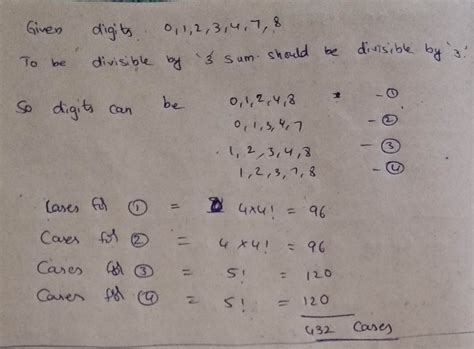 Given digits 0,1,2,3,4,7,8
To be divisible by '3' sum should be divisible by '3'.
So digits can be 0,1,2,4,8 - ①
0,1,3,4,7 - ②
1,2,3,4,8 - ③
1,2,3,7,8 - ④
Cases for ① = 4×4! = 96
Cases for ② = 4×4! = 96
Cases for ③ = 5! = 120
Cases for ④ = 5! = 120
432 Cases